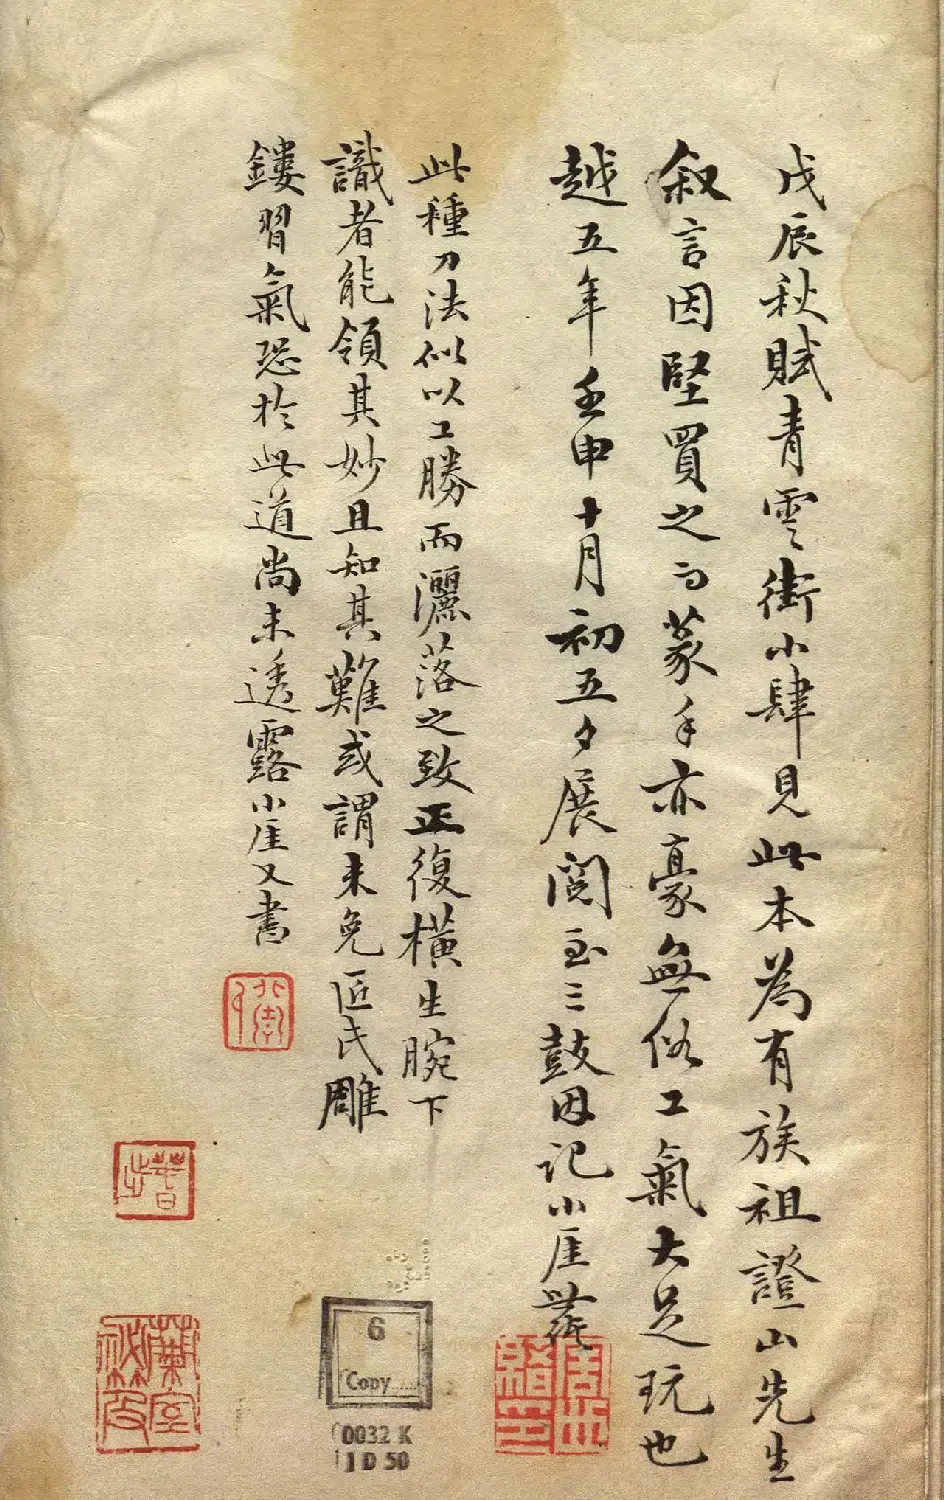 戊辰秋賦青雲街小肆見此本為有族祖證山先生
叙言因堅買之而篆手亦豪無俗工氣大足玩也
越五年壬申十月初五夕展閱至三鼓因記小厓
此種刀法似以工勝而灑落之致正復橫生腕下
識者能領其妙且知其難或謂未免匠氏雕
鏤習氣恐於此道尚未透露小厓又書
6
Copy
0032 K
1 D 50